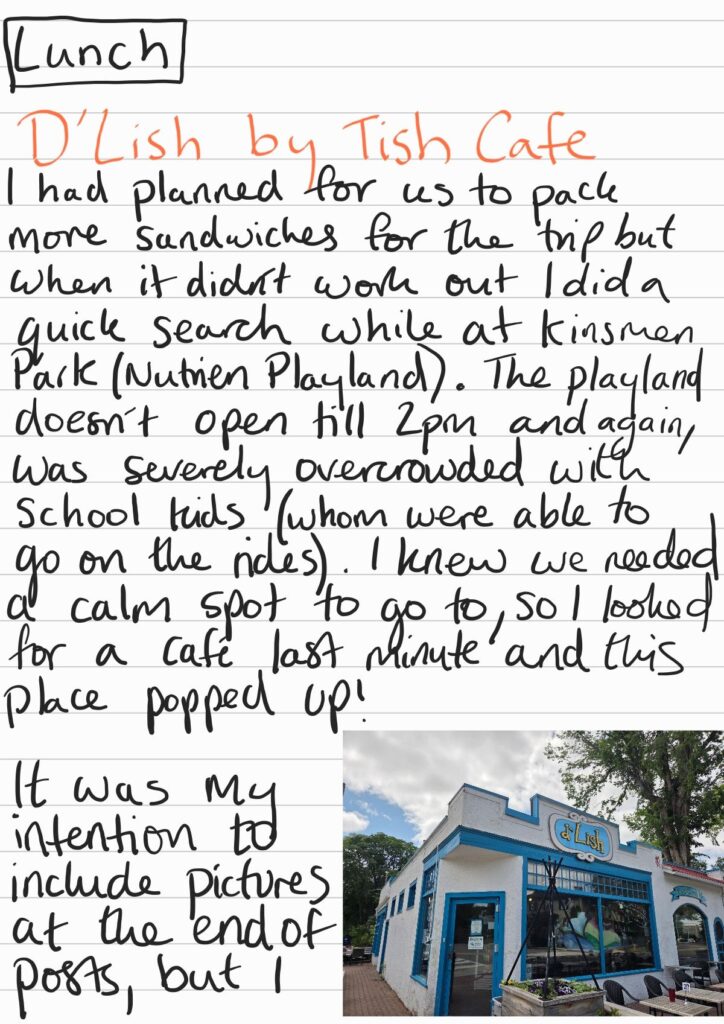 Lunch
D'Lish by Tish Cafe
I had planned for us to pack
more sandwiches for the trip but
when it didn't work out I did a
quick search while at Kinsmen
Park (Nutrien Playland). The playland
doesn't open till 2pm and again,
was severely overcrowded with
school kids (whom were able to
go on the rides). I knew we needed
a calm spot to go to, so I looked
for a café last minute and this
place popped up!
It was my
intention to
include pictures
at the end of
posts, but I
d'Lish